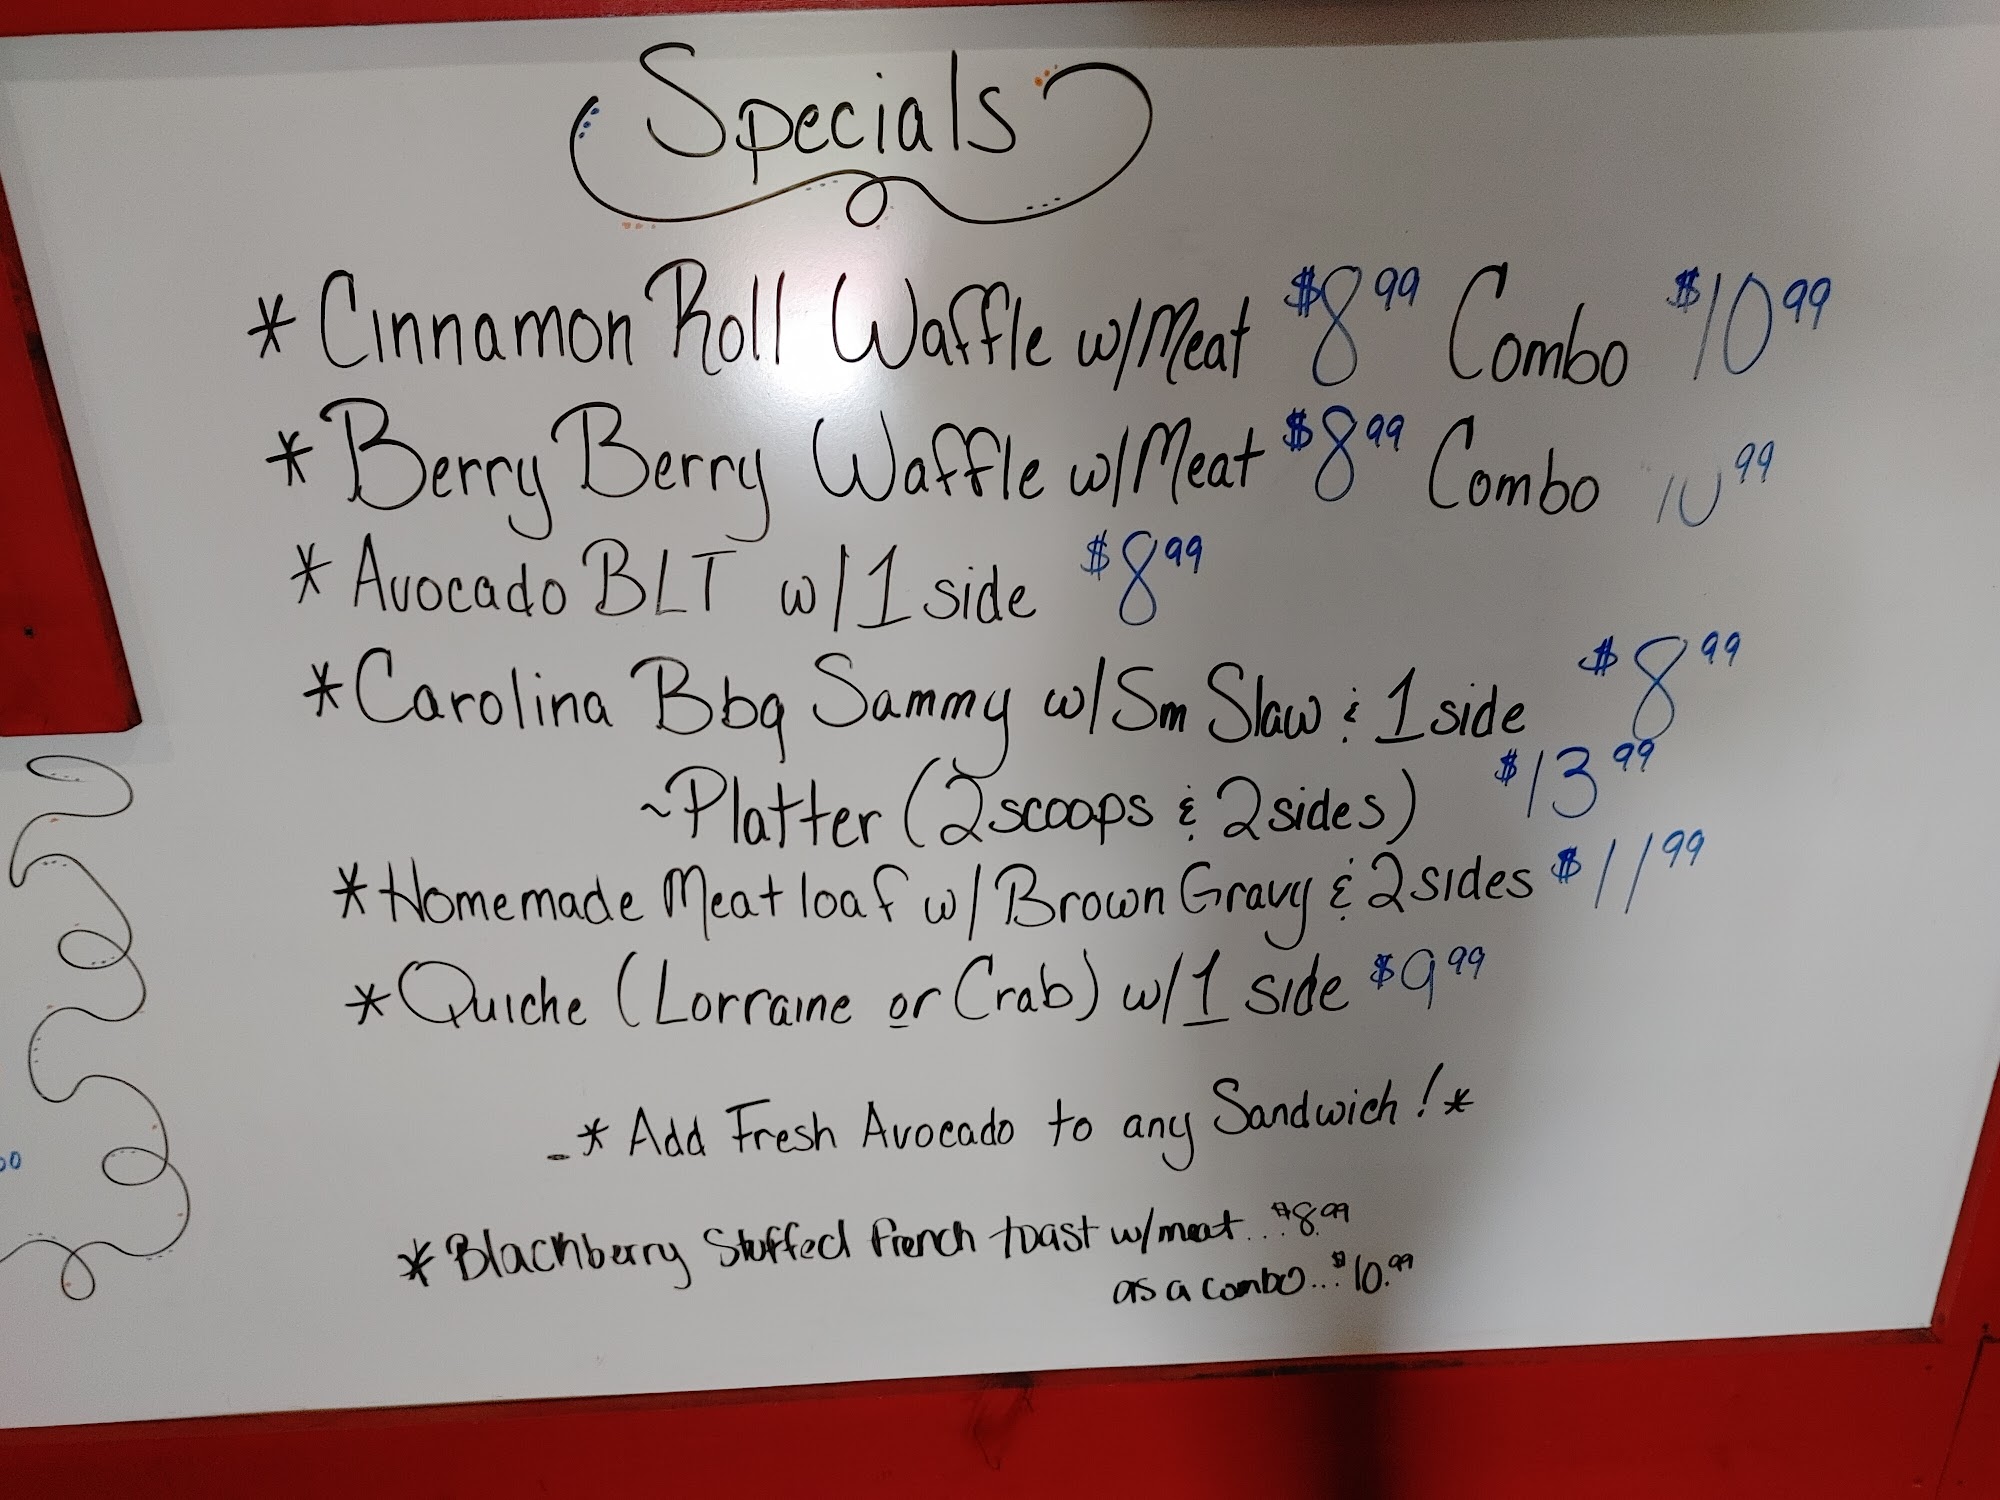 Specials
* Cinnamon Roll Waffle w/Meat $8.99 Combo $10.99
* Berry Berry Waffle w/Meat $8.99 Combo 10.99
* Avocado BLT w/1 side $8.99
* Carolina Bbq Sammy w/Sm Slaw & 1 side $8.99
~Platter (2 scoops & 2 sides) $13.99
* Homemade Meatloaf w/Brown Gravy & 2 sides $11.99
* Quiche (Lorraine or Crab) w/1 side $9.99
- * Add Fresh Avocado to any Sandwich! *
* Blackberry Stuffed french toast w/meat...$8.99
as a combo...$10.99